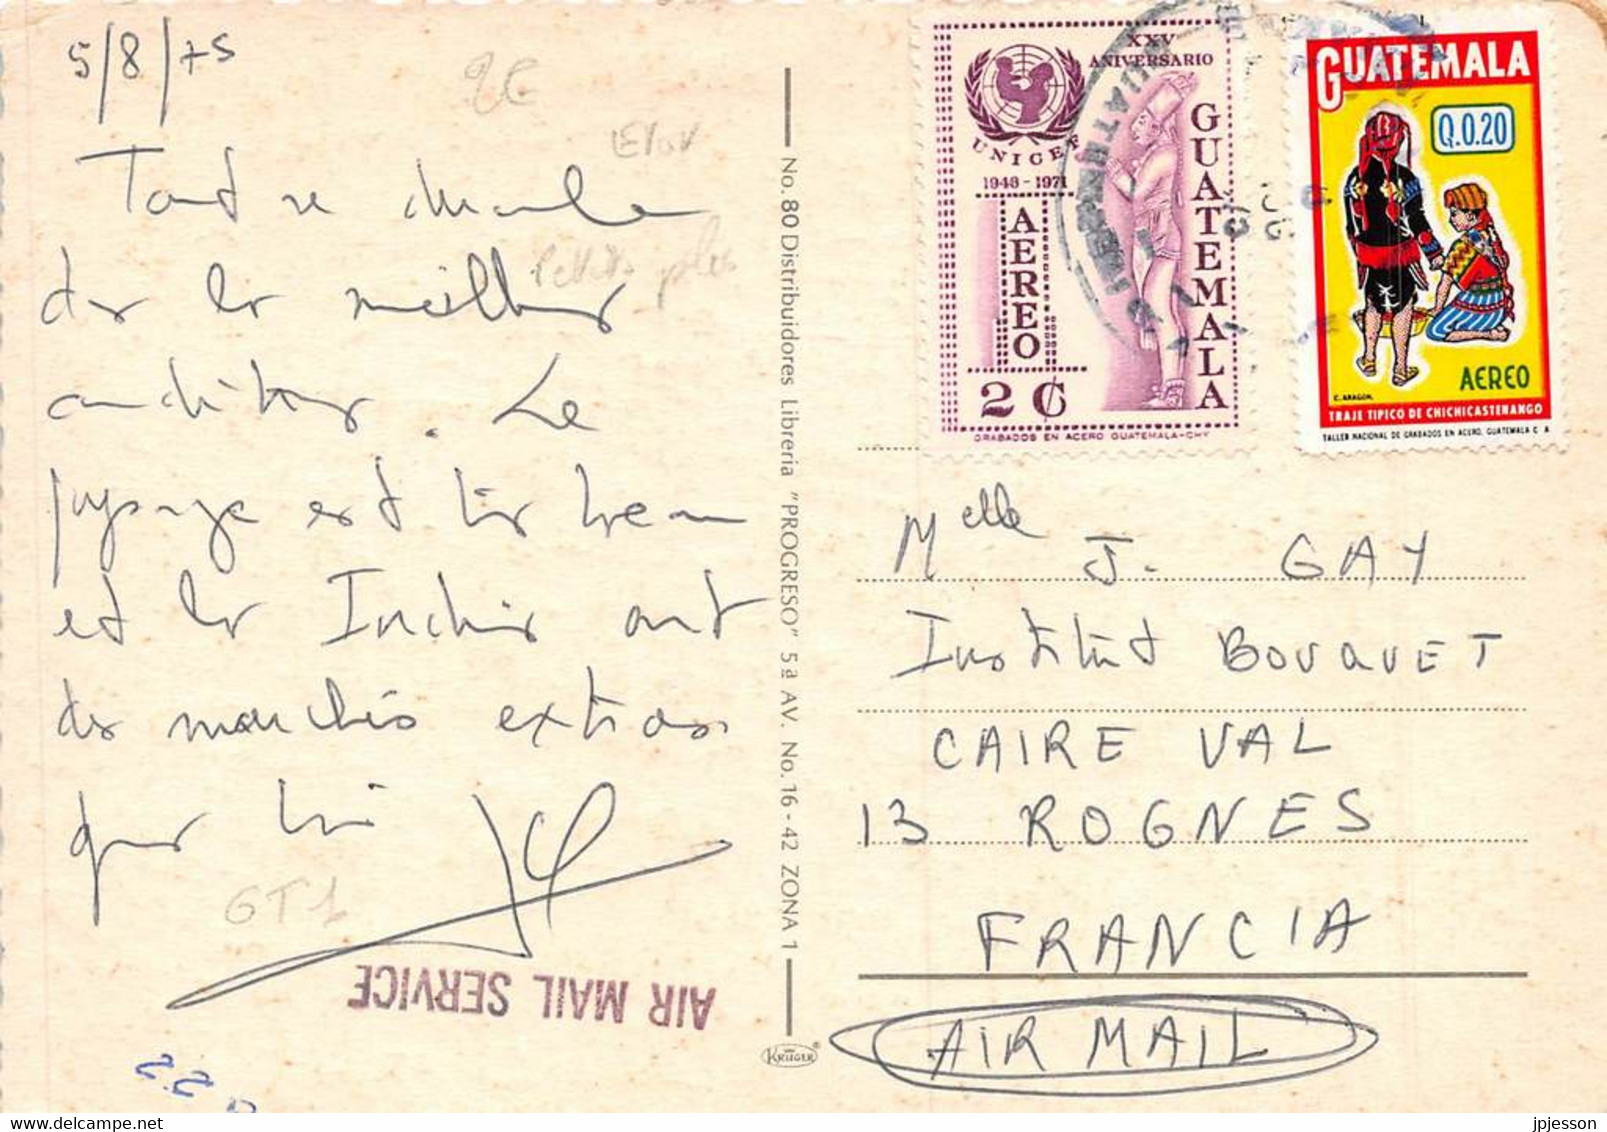 5/8/75
Tout se déroule
dans les meilleures
conditions. Le
paysage est très beau
et les Indiens ont
des marchés extraor
AIR MAIL SERVICE
22
2€
GT1
No. 80 Distribuidores Libreria "PROGRESO" 5a AV. No. 16-42 ZONA 1
KRÜGER
XXV
ANIVERSARIO
UNICEF
1946-1971
AEREO
GUATEMALA
2 ¢
GRABADOS EN ACERO GUATEMALA-CHY
GUATEMALA
Q.0.20
AEREO
C. ARAGON.
TRAJE TIPICO DE CHICHICASTENANGO
TALLER NACIONAL DE GRABADOS EN ACERO, GUATEMALA C A
Melle J. GAY
Institut BOUQUET
CAIRE VAL
13 ROGNES
FRANCIA
AIR MAIL
jpjesson